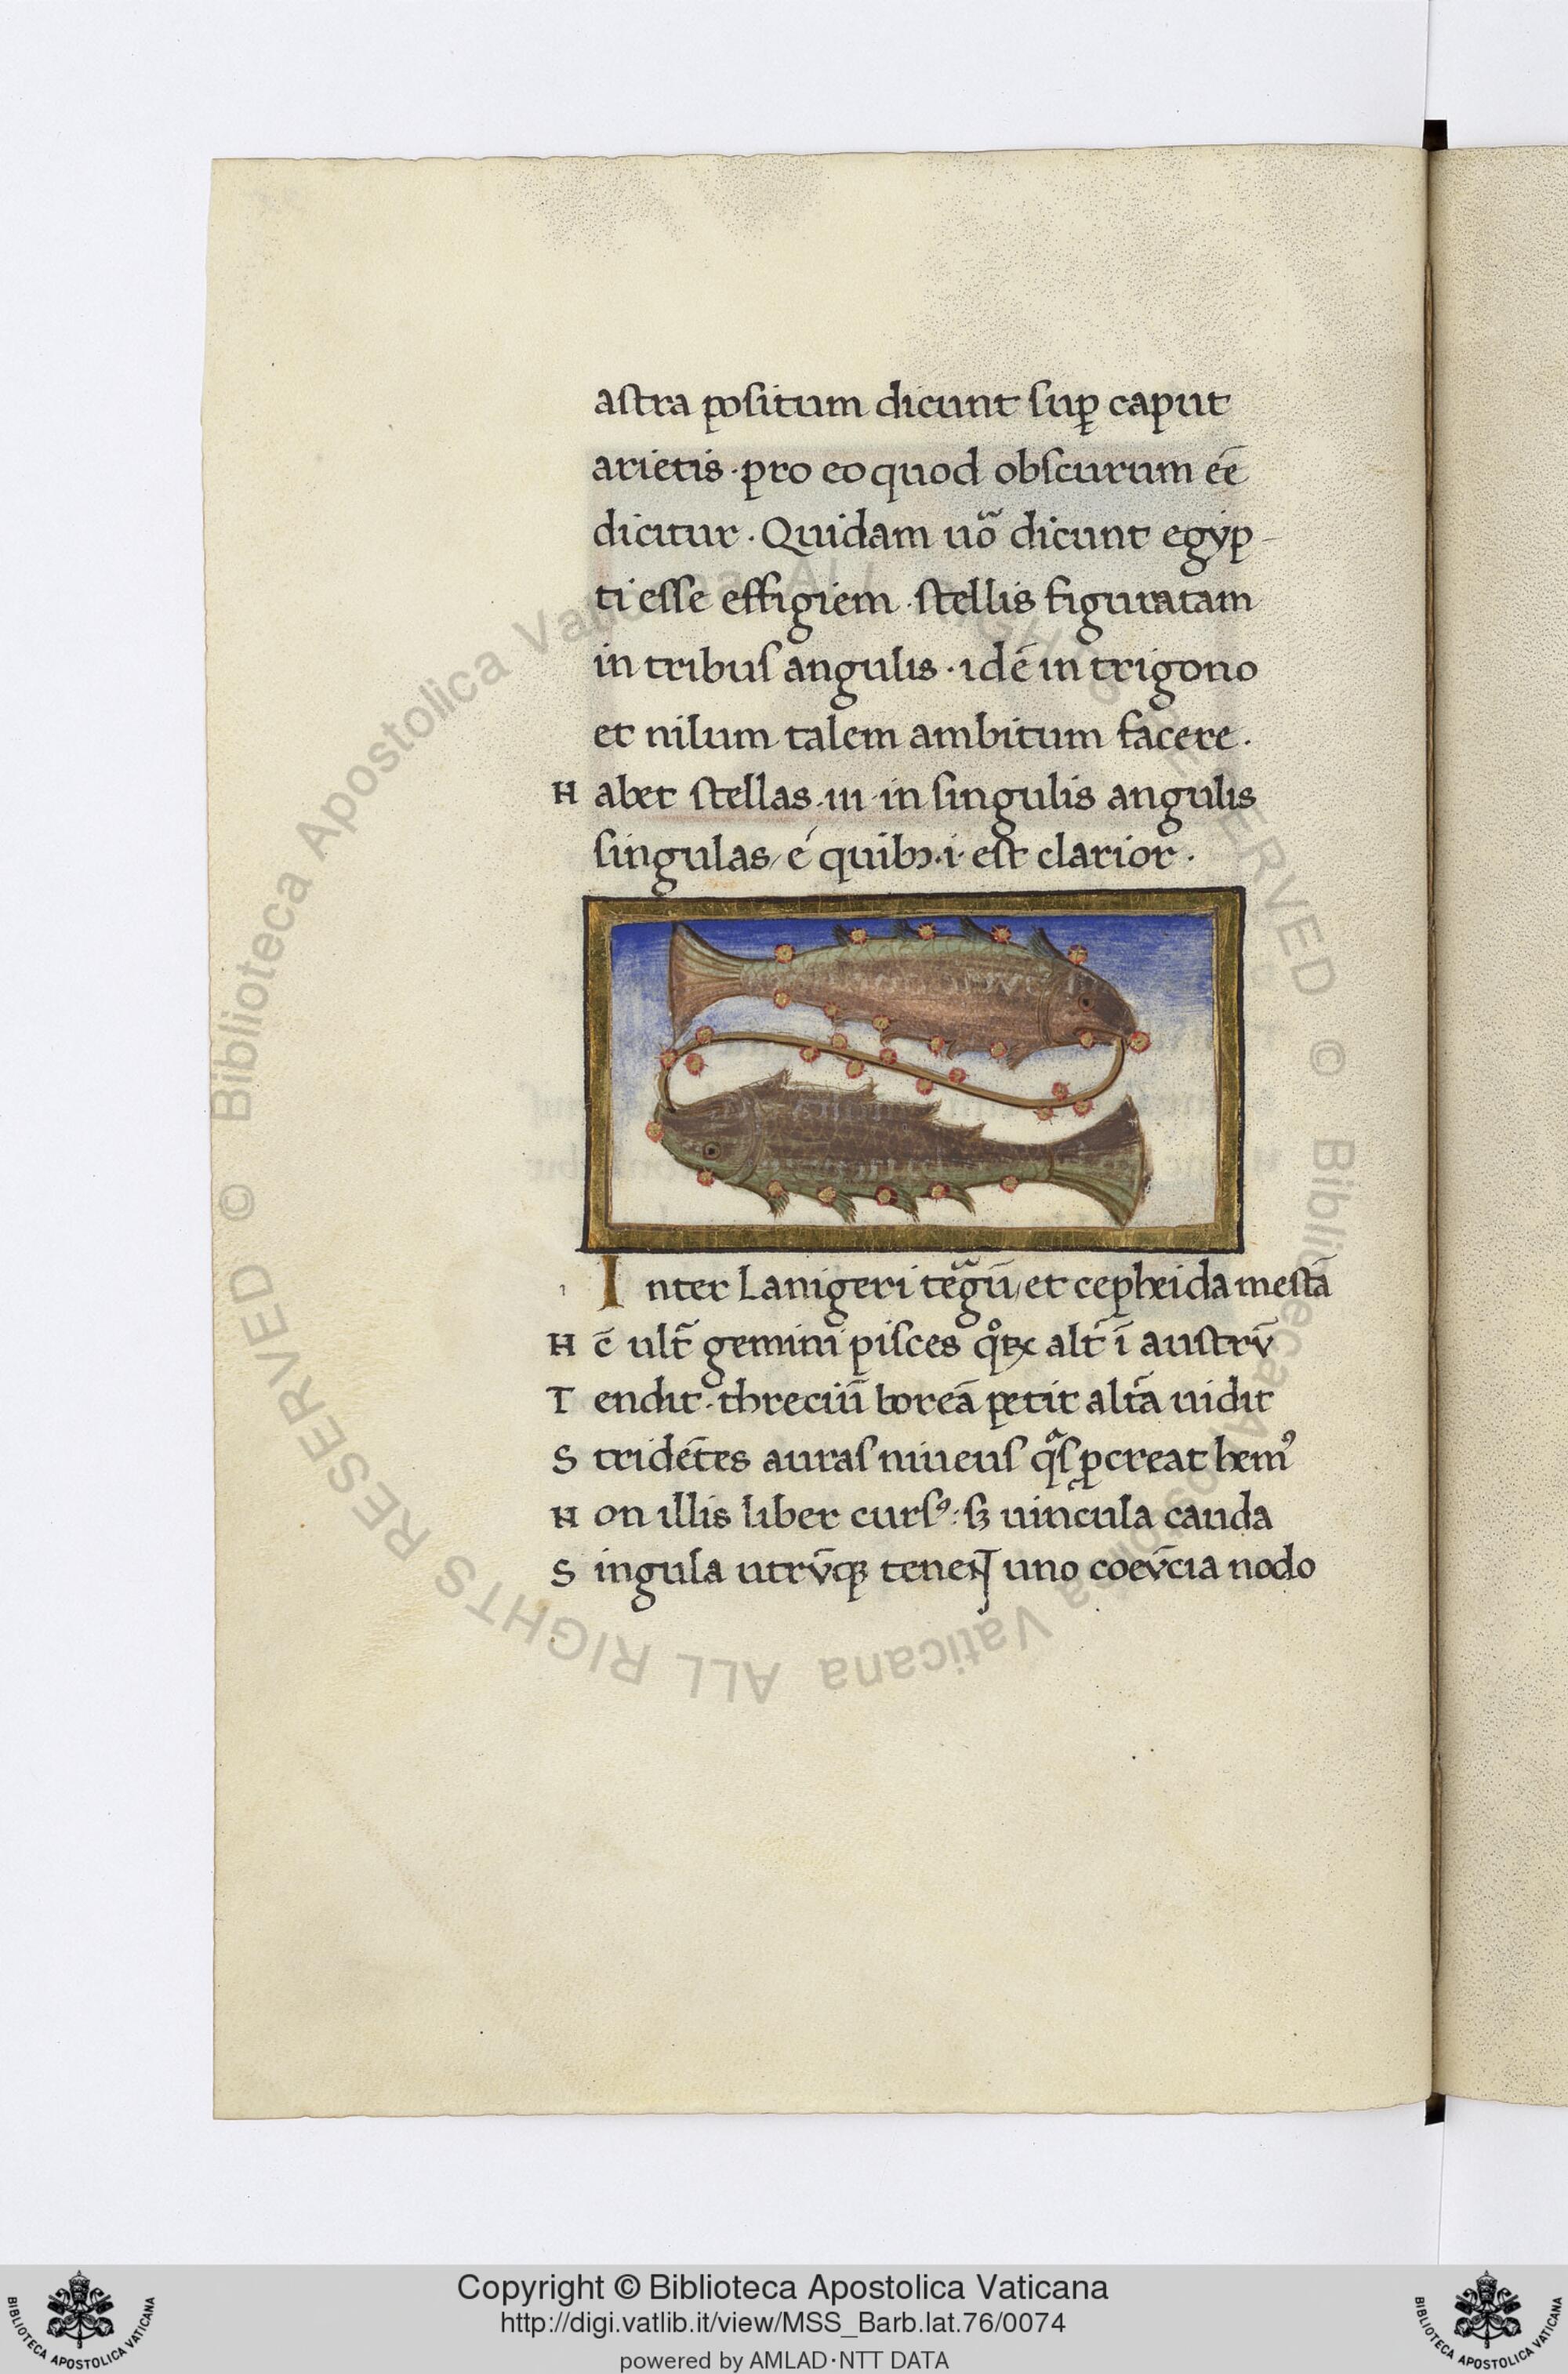 astra positum dicunt suꝑ caput
arietis · pro eo quod obscurum eē
dicitur · Quidam uõ dicunt egyp-
ti esse effigiem · stellis figuratam
in tribus angulis · idē in trigono
et nilum talem ambitum facere ·
Habet stellas · iii · in singulis angulis
singulas / é quibꝫ · i · est clarior ·
Inter Lanigeri tẽgū / et cepheida mestā
Hc̄ ult̃ gemini pisces qͦꝝ alt̃ ī austrv̄
Tendit · threciū boreā petit alt̃a uidit
Stridētes auras niueus qͣs ꝓcreat hemꝰ
Non illis liber cursꝰ : sꝫ uincula cauda
Singula utrv̄qꝫ tenēt uno coev̄cia nodo
© Biblioteca Apostolica Vaticana ALL RIGHTS RESERVED
© Biblioteca Apostolica Vaticana ALL RIGHTS RESERVED
Copyright © Biblioteca Apostolica Vaticana
http://digi.vatlib.it/view/MSS_Barb.lat.76/0074
powered by AMLAD·NTT DATA
BIBLIOTECA APOSTOLICA VATICANA
BIBLIOTECA APOSTOLICA VATICANA